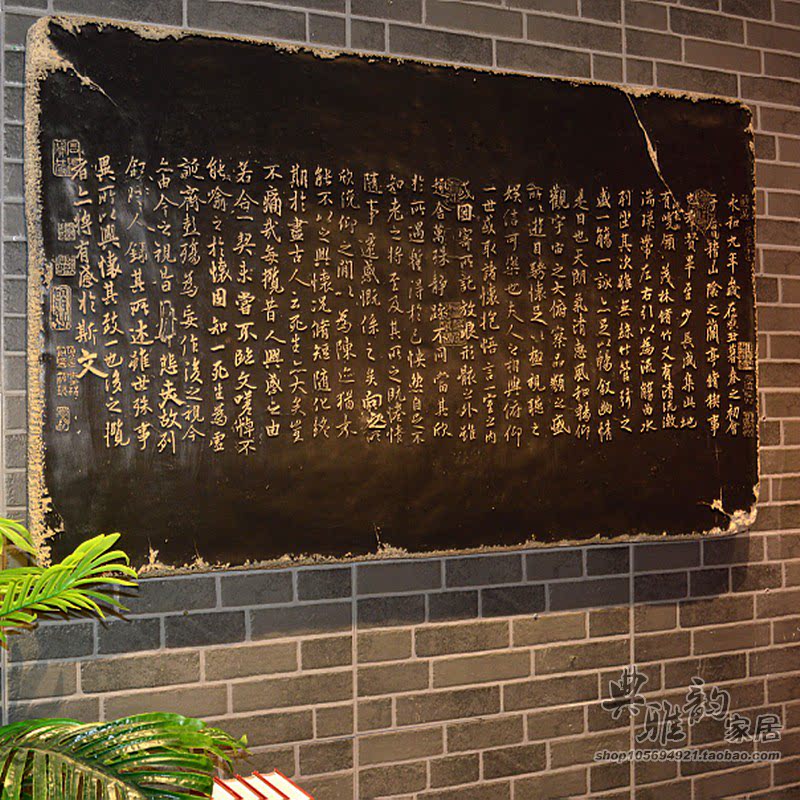 永和九年歲在癸丑暮春之初會
于會稽山陰之蘭亭脩稧事
也羣賢畢至少長咸集此地
有崇山峻領茂林脩竹又有清流激
湍暎帶左右引以為流觴曲水
列坐其次雖無絲竹管弦之
盛一觴一詠亦足以暢敘幽情
是日也天朗氣清惠風和暢仰
觀宇宙之大俯察品類之盛
所以遊目騁懷足以極視聽之
娛信可樂也夫人之相與俯仰
一世或取諸懷抱悟言一室之內
或因寄所託放浪形骸之外雖
趣舍萬殊靜躁不同當其欣
於所遇蹔得於己怏然自足不
知老之將至及其所之既惓情
隨事遷感慨係之矣向之所
欣俛仰之間以為陳迹猶不
能不以之興懷況脩短隨化終
期於盡古人云死生亦大矣豈
不痛哉每攬昔人興感之由
若合一契未嘗不臨文嗟悼不
能喻之於懷固知一死生為虛
誕齊彭殤為妄作後之視今
亦由今之視昔悲夫故列
敘時人錄其所述雖世殊事
異所以興懷其致一也後之攬
者亦將有感於斯文
典雅韵家居
shop105694921.taobao.com